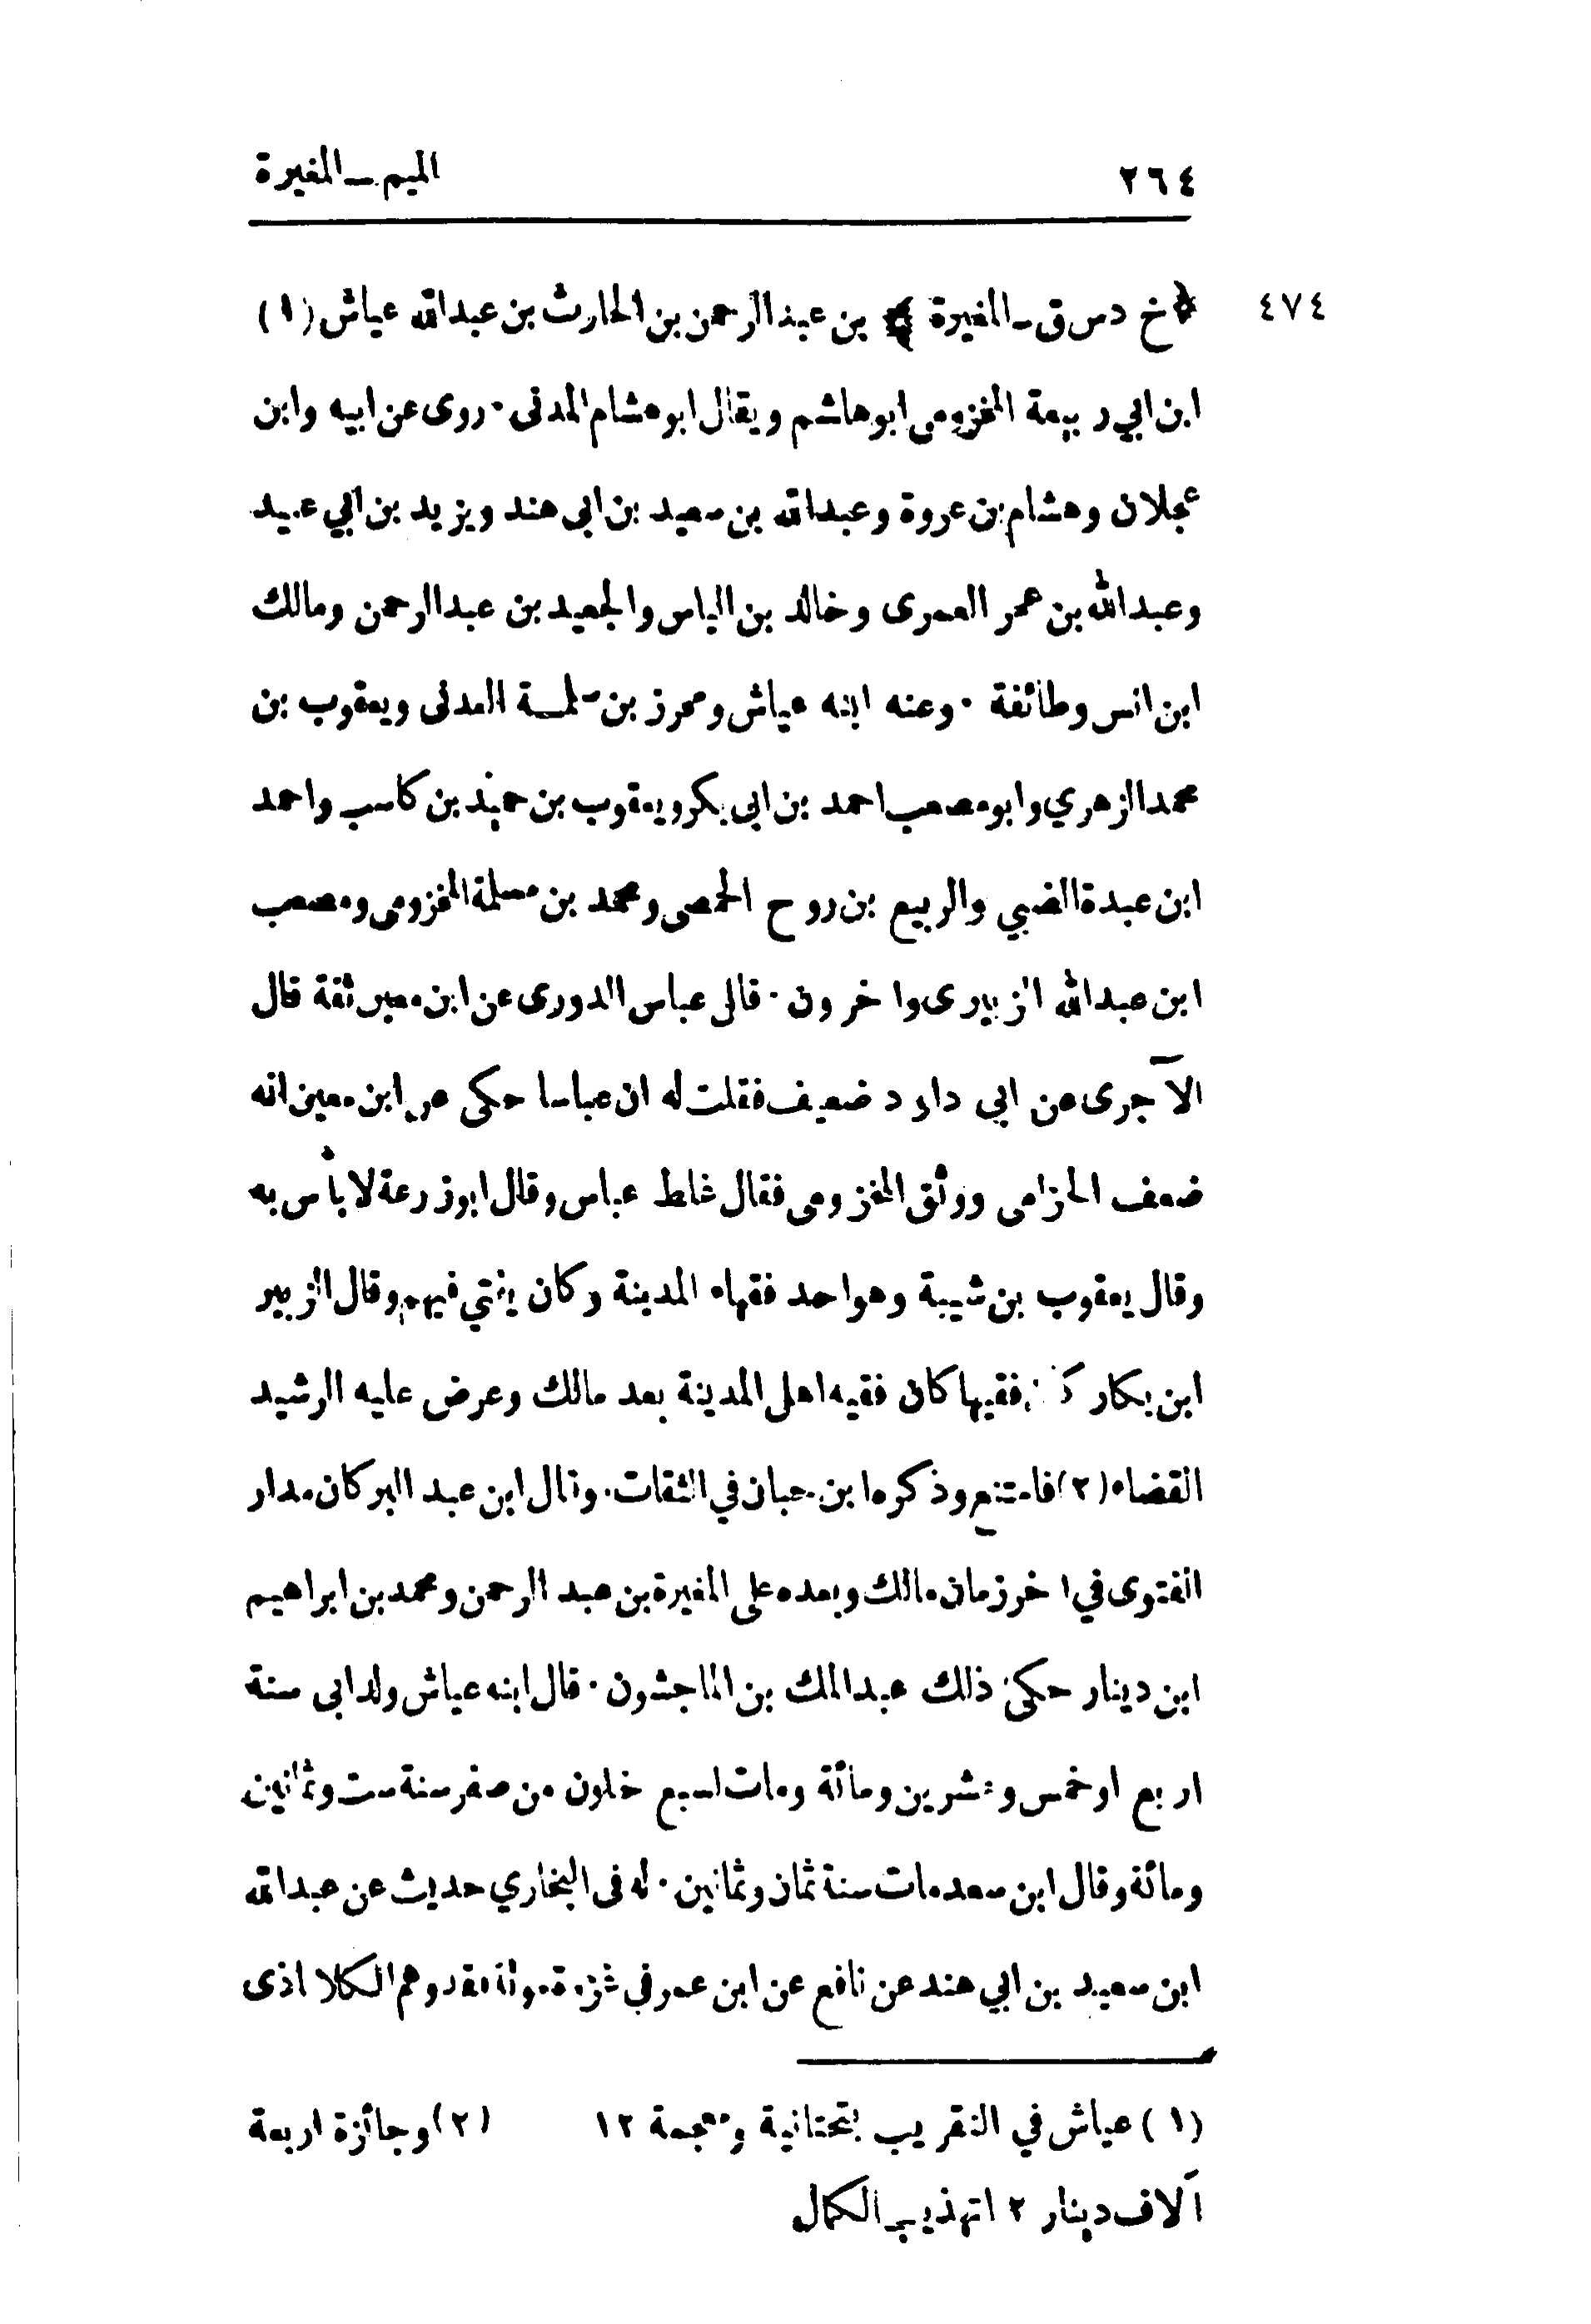 ٢٦٤
الميم ـ المغيرة
٤٧٤
﴿ خ د س ق ـ المغيرة ﴾ بن عبد الرحمن بن الحارث بن عبدالله عياش (١)
ابن ابي ربيعة المخزومى ابو هاشم ويقال ابو هشام المدنى ٠ روى عن ابيه وابن
عجلان وهشام بن عروة وعبدالله بن سعيد بن ابى هند ويزيد بن ابي عبيد
وعبدالله بن عمر العمرى وخالد بن الياس والجعيد بن عبدالرحمن ومالك
ابن انس وطائفة ٠ وعنه ابنه عياش ومحرز بن سلمة العدنى ويعقوب بن
محمد الزهري وابو مصعب احمد بن ابى بكر ويعقوب بن حميد بن كاسب واحمد
ابن عبدة الضبي والربيع بن روح الحمصى ومحمد بن مسلمة المخزومى ومصعب
ابن عبدالله الزبيرى وا خرون ٠ قال عباس الدورى عن ابن معين ثقة قال
الآجرى عن ابي داود ضعيف فقلت له ان عباسا حكى عن ابن معين انه
ضعف الحزامى ووثق المخزومى فقال غلط عباس وقال ابو زرعة لا بأس به
وقال يعقوب بن شيبة وهو احد فقهاء المدينة وكان يفتي فيهم وقال الزبير
ابن بكار فقيها كان فقيه اهل المدينة بعد مالك وعرض عليه الرشيد
القضاء (٢) فامتنع وذكره ابن حبان في الثقات ٠ وقال ابن عبد البر كان مدار
الفتوى في ا خر زمان مالك وبعده على المغيرة بن عبد الرحمن ومحمد بن ابراهيم
ابن دينار حكى ذلك عبدالملك بن الماجشون ٠ قال ابنه عياش ولد ابى سنة
اربع او خمس وعشرين ومائة ومات لسبع خلون من صفر سنة ست وثمانين
ومائة وقال ابن سعد مات سنة ثمان وثمانين ٠ له فى البخاري حديث عن عبدالله
ابن سعيد بن ابي هند عن نافع عن ابن عمر في غزوة موتة وقد وهم الكلاباذى
(١) عياش في التقريب بتحتانية ومعجمة ١٢ (٢) وجائزة اربعة
آلاف دينار ١٢ تهذيب الكمال